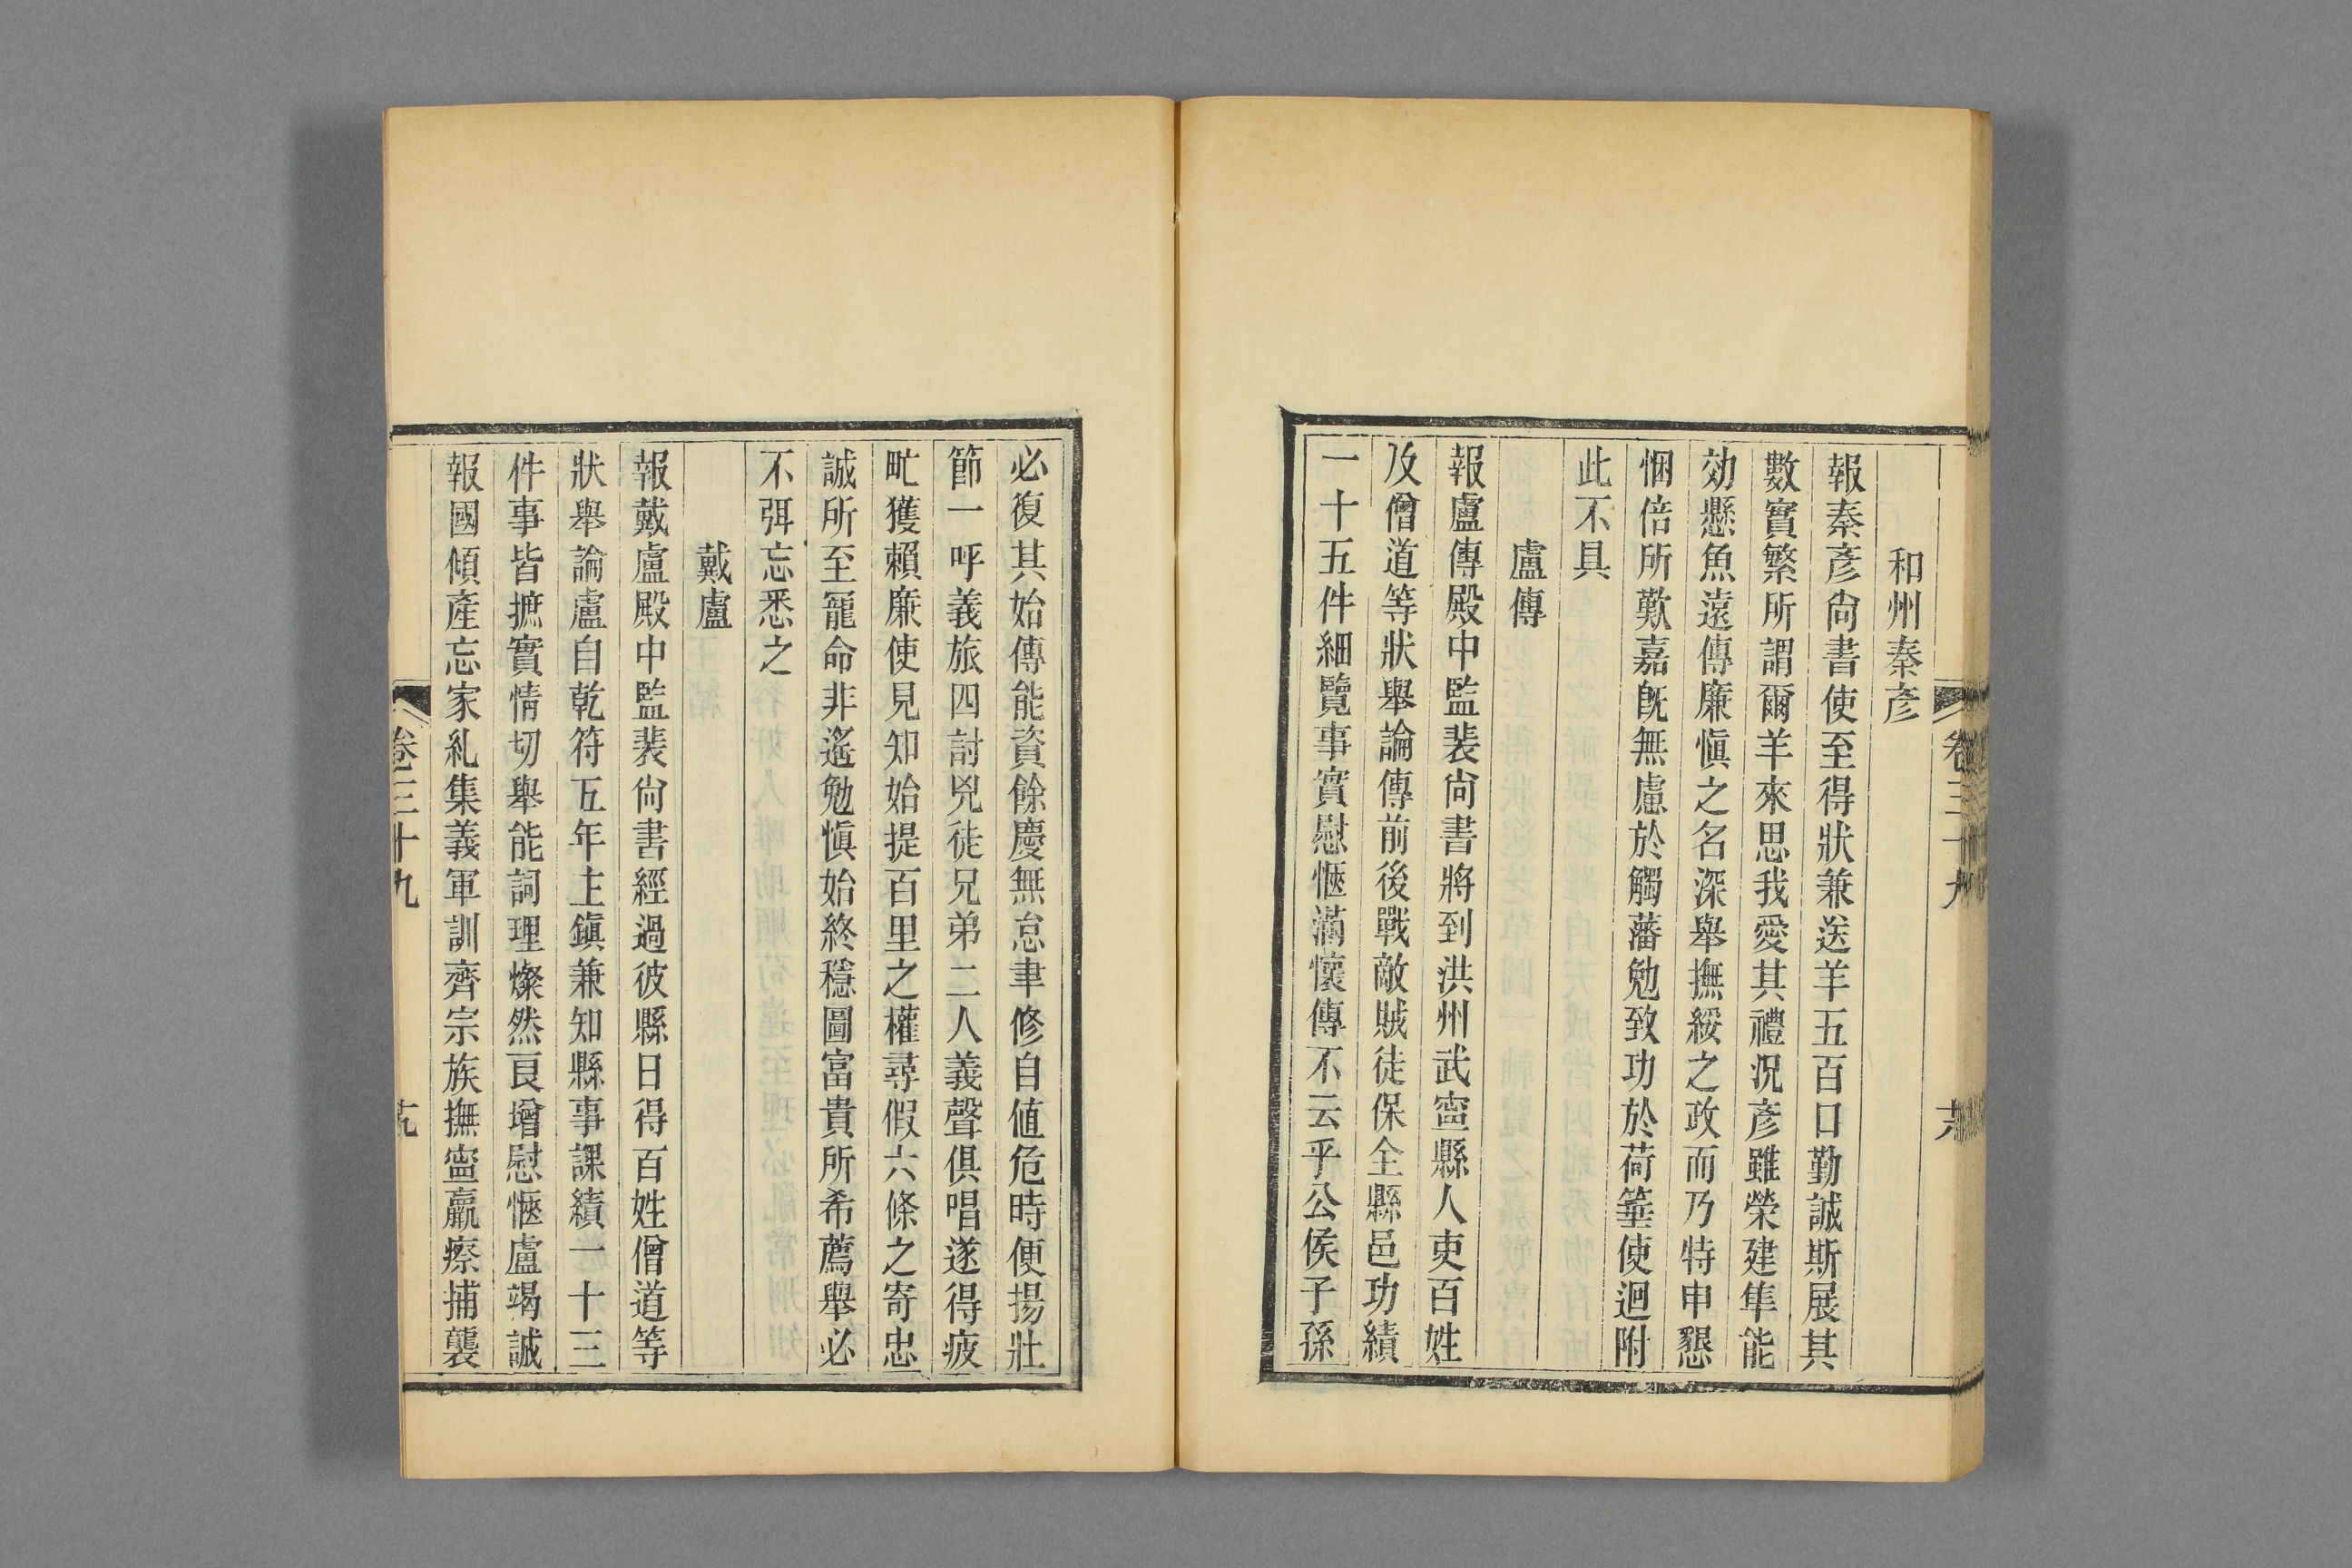 和州秦彥
報秦彥尙書使至得狀兼送羊五百口勤誠斯展其
數實繁所謂爾羊來思我愛其禮況彥雖榮建隼能
効懸魚遠傳廉愼之名深舉撫綏之政而乃特申懇
悃倍所歎嘉旣無慮於觸藩勉致功於荷箠使迴附
此不具
盧傳
報盧傳殿中監裴尙書將到洪州武寍縣人吏百姓
及僧道等狀舉論傳前後戰敵賊徒保全縣邑功績
一十五件細覽事實慰愜滿懷傳不云乎公侯子孫
必復其始傳能資餘慶無怠聿修自値危時便揚壯
節一呼義旅四討兇徒兄弟二人義聲俱唱遂得疲
甿獲賴廉使見知始提百里之權尋假六條之寄忠
誠所至寵命非遙勉愼始終穩圖富貴所希薦舉必
不弭忘悉之
戴盧
報戴盧殿中監裴尙書經過彼縣日得百姓僧道等
狀舉論盧自乾符五年主鎭兼知縣事課績一十三
件事皆摭實情切舉能詞理燦然良增慰愜盧竭誠
報國傾產忘家糺集義軍訓齊宗族撫寍羸瘵捕襲
卷三十九